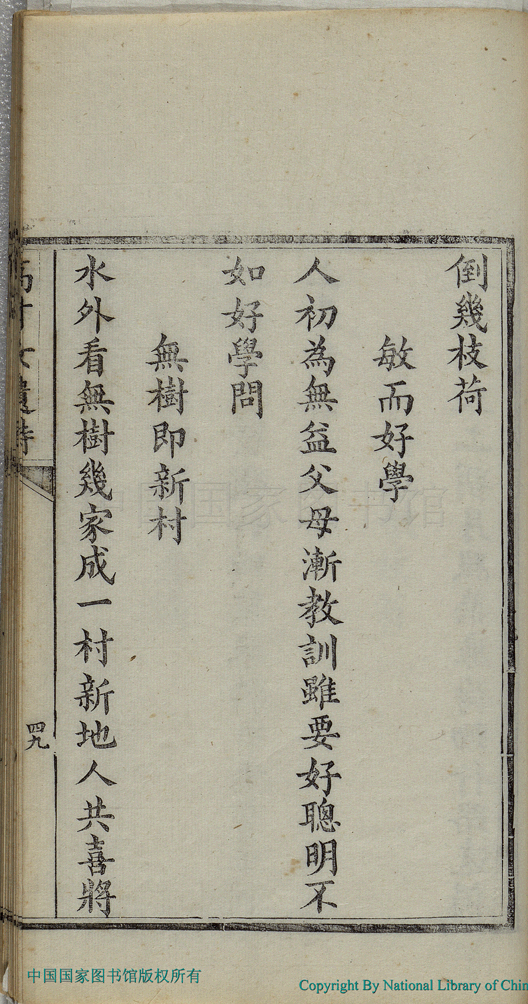 倒幾枝荷
敏而好學
人初為無益父母漸教訓雖要好聰明不
如好學問
無樹即新村
水外看無樹幾家成一村新地人共喜將
女遺詩
四九
中国国家图书馆
中国国家图书馆版权所有
Copyright By National Library of Chin